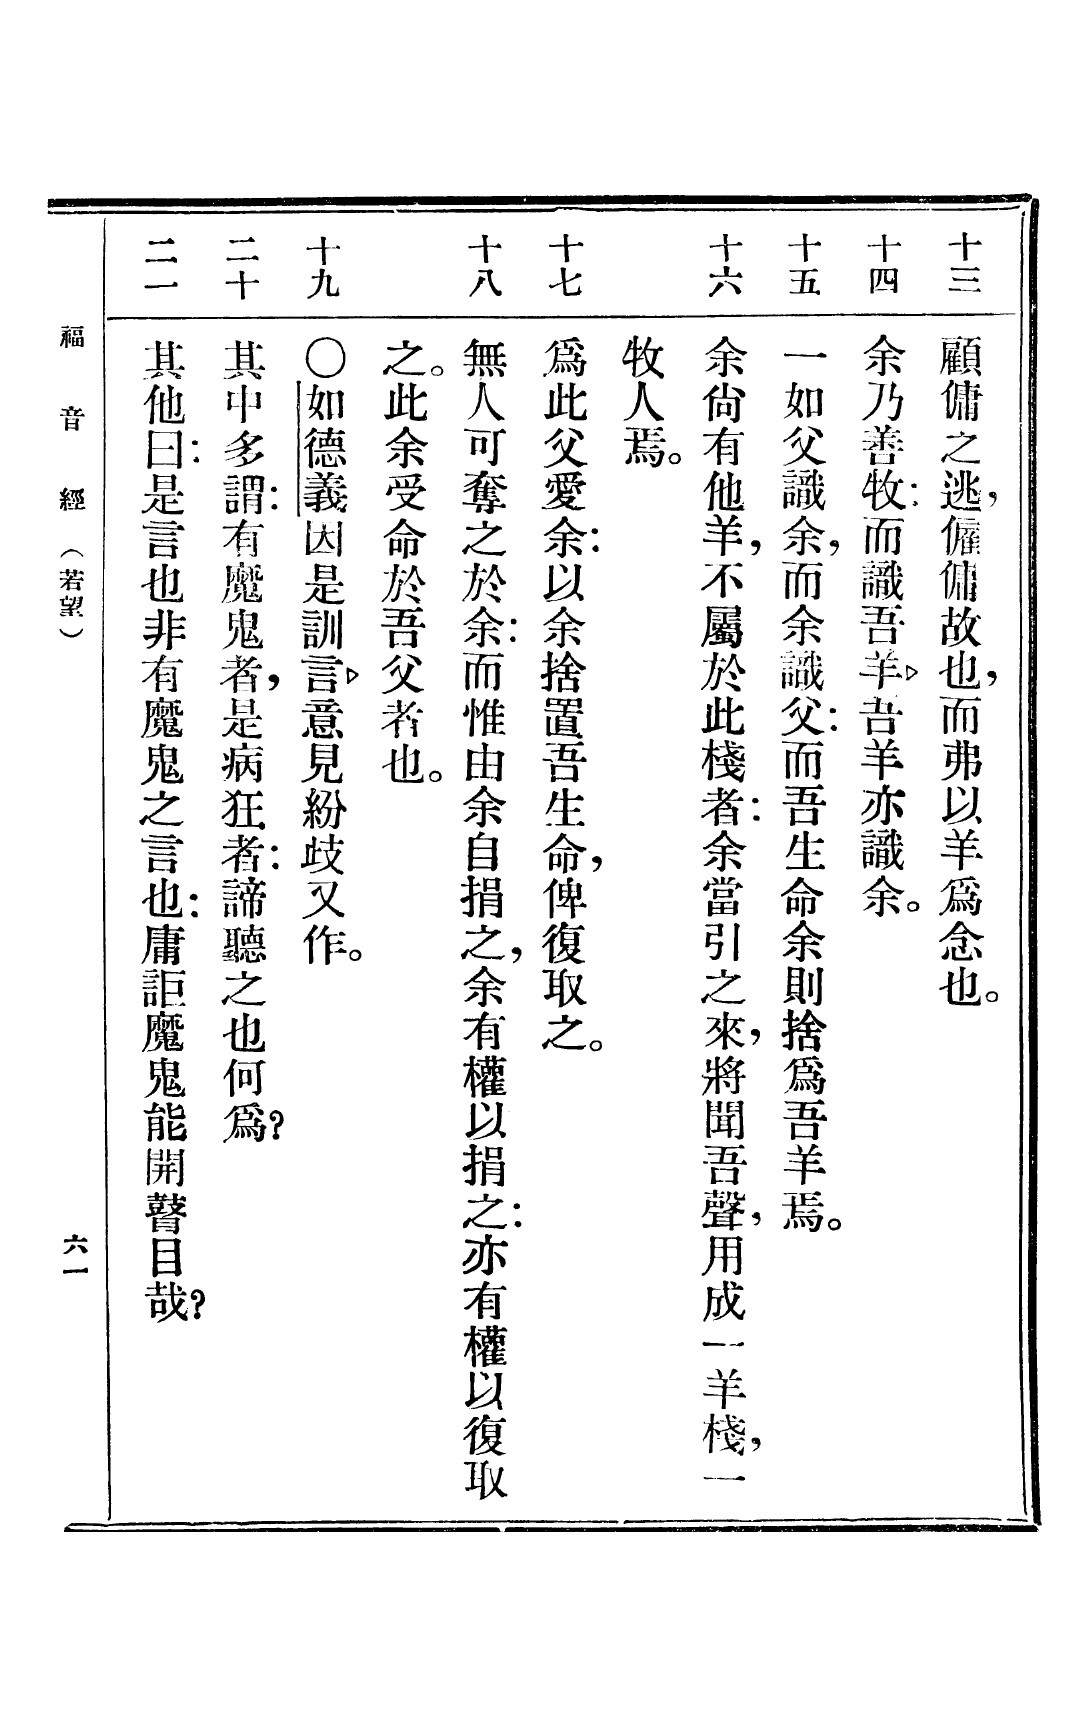 十三 顧傭之逃,僱傭故也,而弗以羊爲念也。
十四 余乃善牧:而識吾羊▷吾羊亦識余。
十五 一如父識余,而余識父:而吾生命余則捨爲吾羊焉。
十六 余尙有他羊,不屬於此棧者:余當引之來,將聞吾聲,用成一羊棧,一
牧人焉。
十七 爲此父愛余:以余捨置吾生命,俾復取之。
十八 無人可奪之於余:而惟由余自捐之,余有權以捐之:亦有權以復取
之。此余受命於吾父者也。
十九 〇如德義因是訓言▷意見紛歧又作。
二十 其中多謂:有魔鬼者,是病狂者:諦聽之也何爲?
二一 其他曰:是言也非有魔鬼之言也:庸詎魔鬼能開瞽目哉?
福音經(若望) 六一